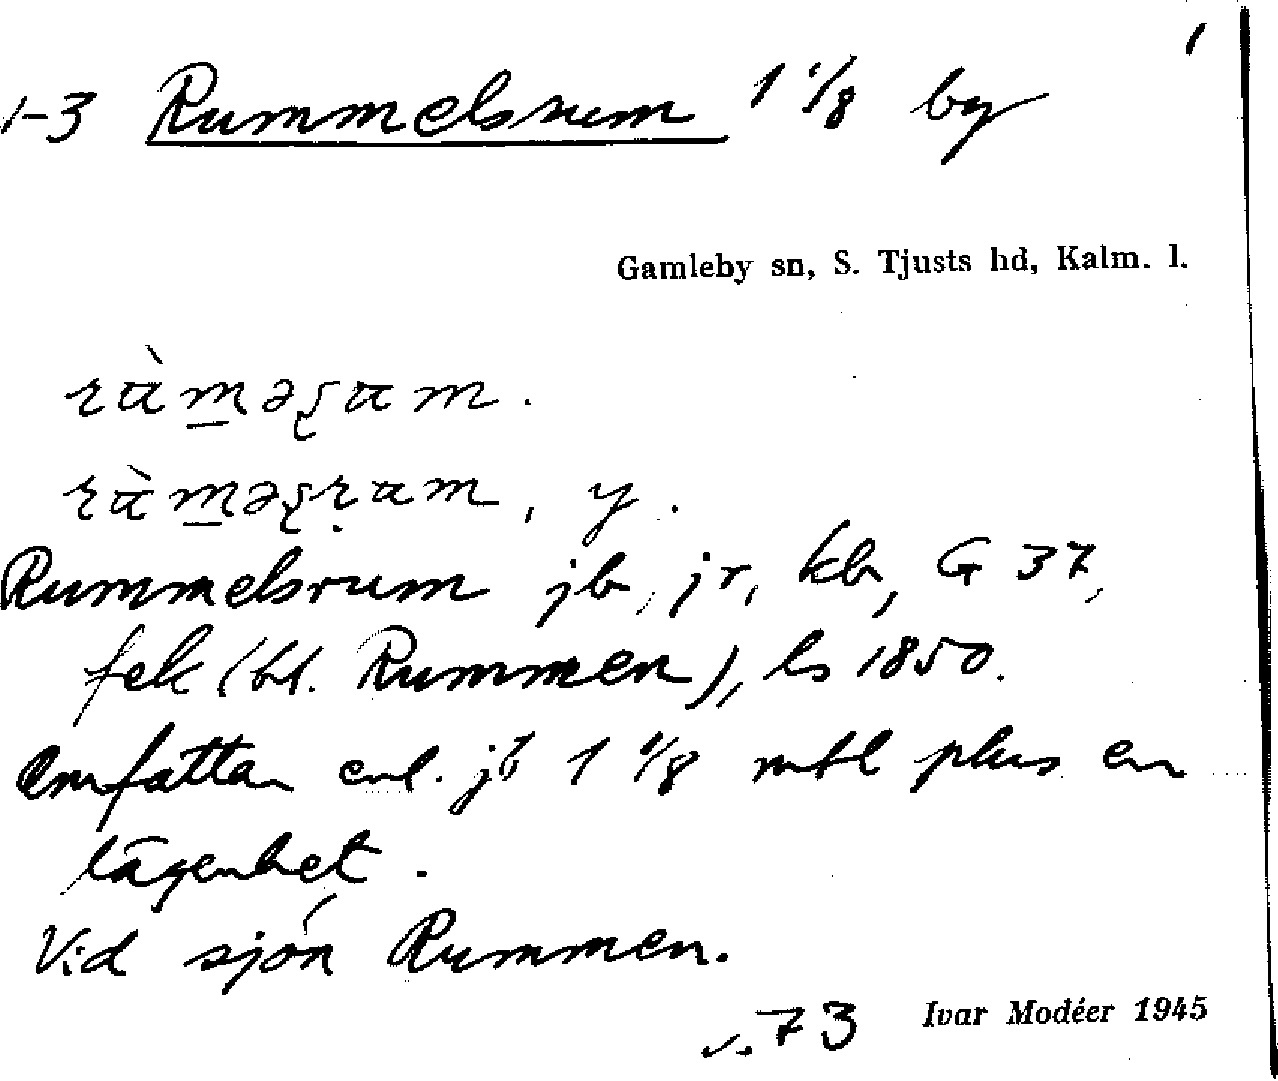 1
1-3 Rummelsrum 1 1/8 by
Gamleby sn, S. Tjusts hd, Kalm. l.
y.
Rummelsrum jb, jr, kb, G 37,
fek (bl. Rummen), ls 1850.
Omfattar enl. jb 1 1/8 mtl plus en
lägenhet.
Vid sjön Rummen.
s. 73 Ivar Modéer 1945